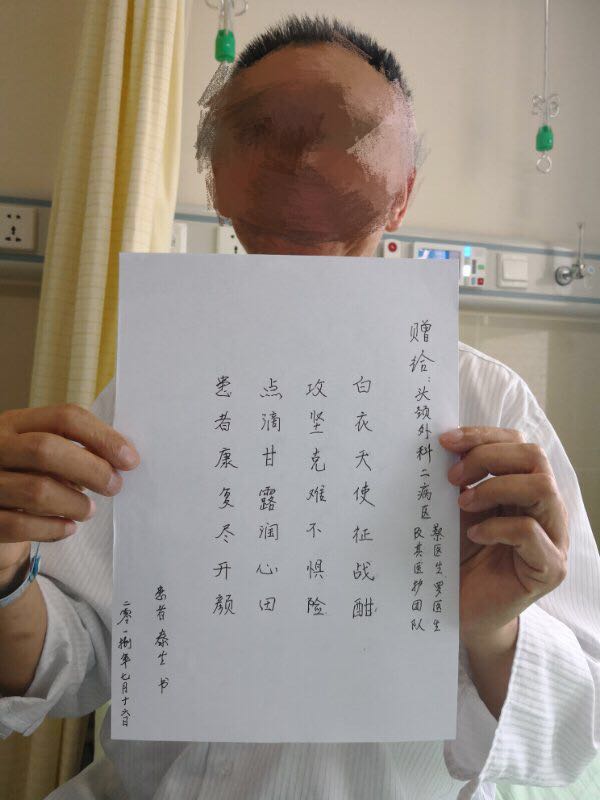 赠给：头颈外科二病区
桑医生罗医生
及其医护团队
白衣天使征战酣
攻坚克难不惧险
点滴甘露润心田
患者康复尽开颜
患者泰生书
二零一捌年七月十六日